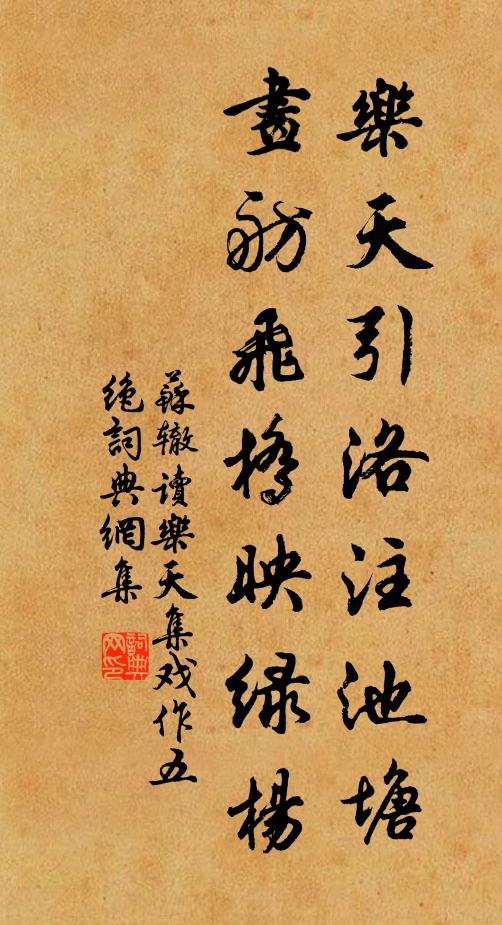 樂天引洛注池塘
畫舫飛橋映緑楊
蘇辙讀樂天集戏作五
绝詞典網集
詞典網印